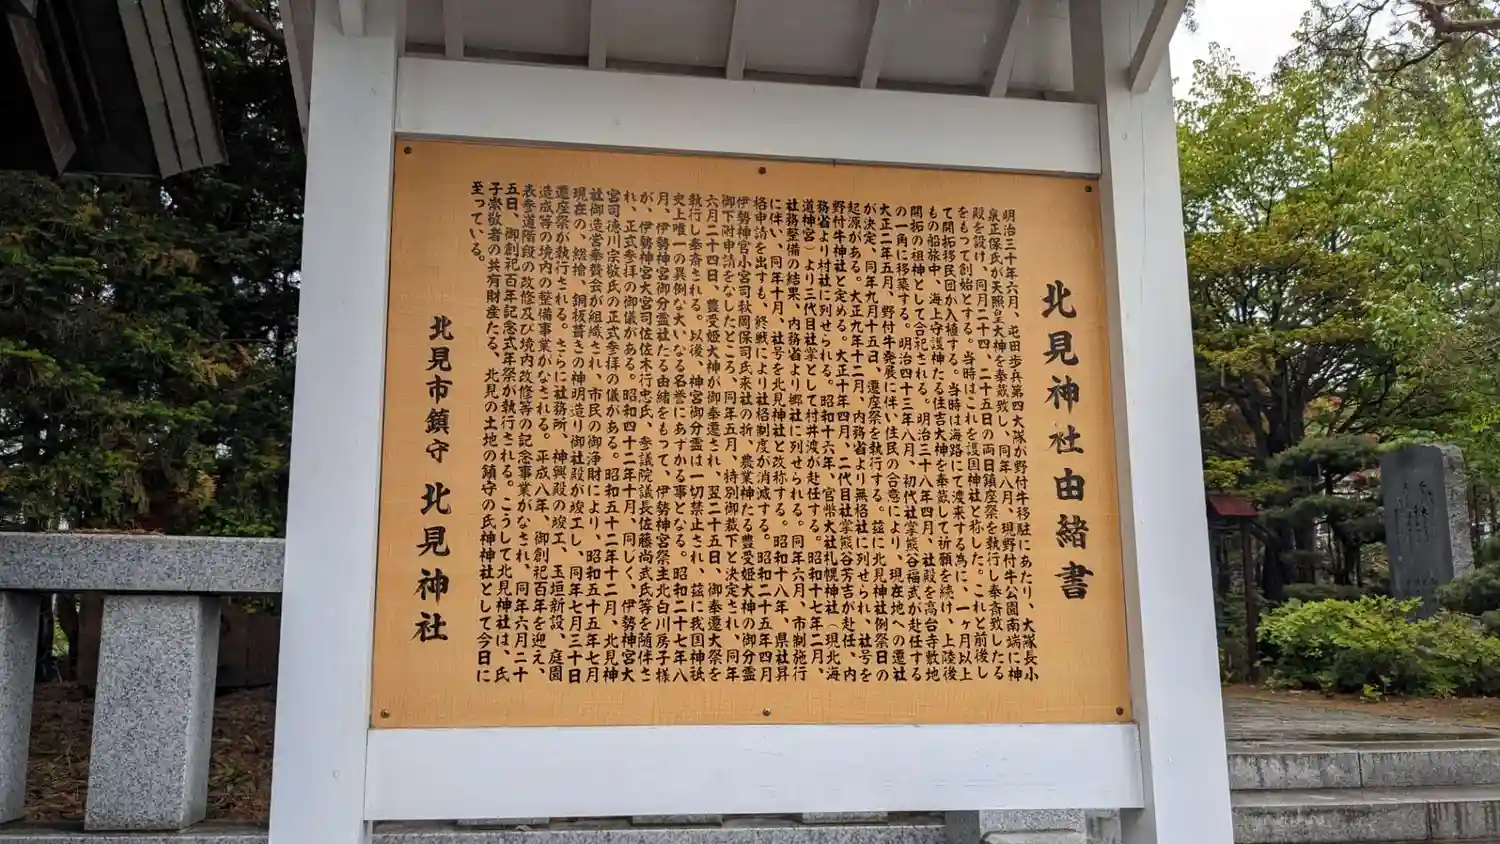 北見神社由緒書
明治三十年六月、屯田歩兵第四大隊が野付牛移駐にあたり、大隊長小
泉正保氏が天照皇大神を奉戴致し、同年八月、現野付牛公園南端に神
殿を設け、同月二十四、二十五日の両日鎮座祭を執行し奉斎致したる
をもつて創始とする。当時はこれを護国神社と称した。これと前後し
て開拓移民団が入植する。当時は海路にて渡来する為に、一ヶ月以上
もの船旅中、海上守護神たる住吉大神を奉戴して祈願を続け、上陸後
開拓の祖神として合祀される。明治三十八年四月、社殿を高台寺敷地
の一角に移築する。明治四十三年八月、初代社掌熊谷福武が赴任する
大正二年五月、野付牛発展に伴い住民の合意により、現在地への遷社
が決定、同年九月十五日、遷座祭を執行する。茲に北見神社例祭日の
起源がある。大正九年十二月、内務省より無格社に列せられ、社号を
野付牛神社と定める。大正十年四月、二代目社掌熊谷芳吉が赴任、内
務省より村社に列せられる。昭和十六年、官幣大社札幌神社（現北海
道神宮）より三代目社掌として村井渡が赴任する。昭和十七年二月、
社務整備の結果、内務省より郷社に列せられる。同年六月、市制施行
に伴い、同年十月、社号を北見神社と改称する。昭和十八年、県社昇
格申請を出すも、終戦により社格制度が消滅する。昭和二十五年四月
伊勢神宮小宮司秋岡保司氏来社の折、農業神たる豊受姫大神の御分霊
御下附申請をなしたところ、同年五月、特別御裁下と決定され、同年
六月二十四日、豊受姫大神が御奉遷され、翌二十五日、御奉遷大祭を
執行し奉斎される。以後、神宮御分霊は一切禁止され、茲に我国神祇
史上唯一の異例な大いなる名誉にあずかる事となる。昭和二十七年八
月、伊勢神宮御分霊社たる由緒をもつて、伊勢神宮祭主北白川房子様
が、伊勢神宮大宮司佐佐木行忠氏、参議院議長佐藤尚武氏等を随伴さ
れ、正式参拝の御儀がある。昭和四十二年十月、同じく、伊勢神宮大
宮司徳川宗敬氏の正式参拝の儀がある。昭和五十二年十二月、北見神
社御造営奉賛会が組織され、市民の御浄財により、昭和五十五年七月
現在の、総檜、銅板葺きの神明造り御社殿が竣工し、同年七月三十日
遷座祭が執行される。さらに社務所、神輿殿の竣工、玉垣新設、庭園
造成等の境内の整備事業がなされる。平成八年、御創祀百年を迎え、
表参道階段の改修及び境内改修等の記念事業がなされ、同年六月二十
五日、御創祀百年記念式年祭が執行される。こうして北見神社は、氏
子崇敬者の共有財産たる、北見の土地の鎮守の氏神神社として今日に
至っている。
北見市鎮守 北見神社